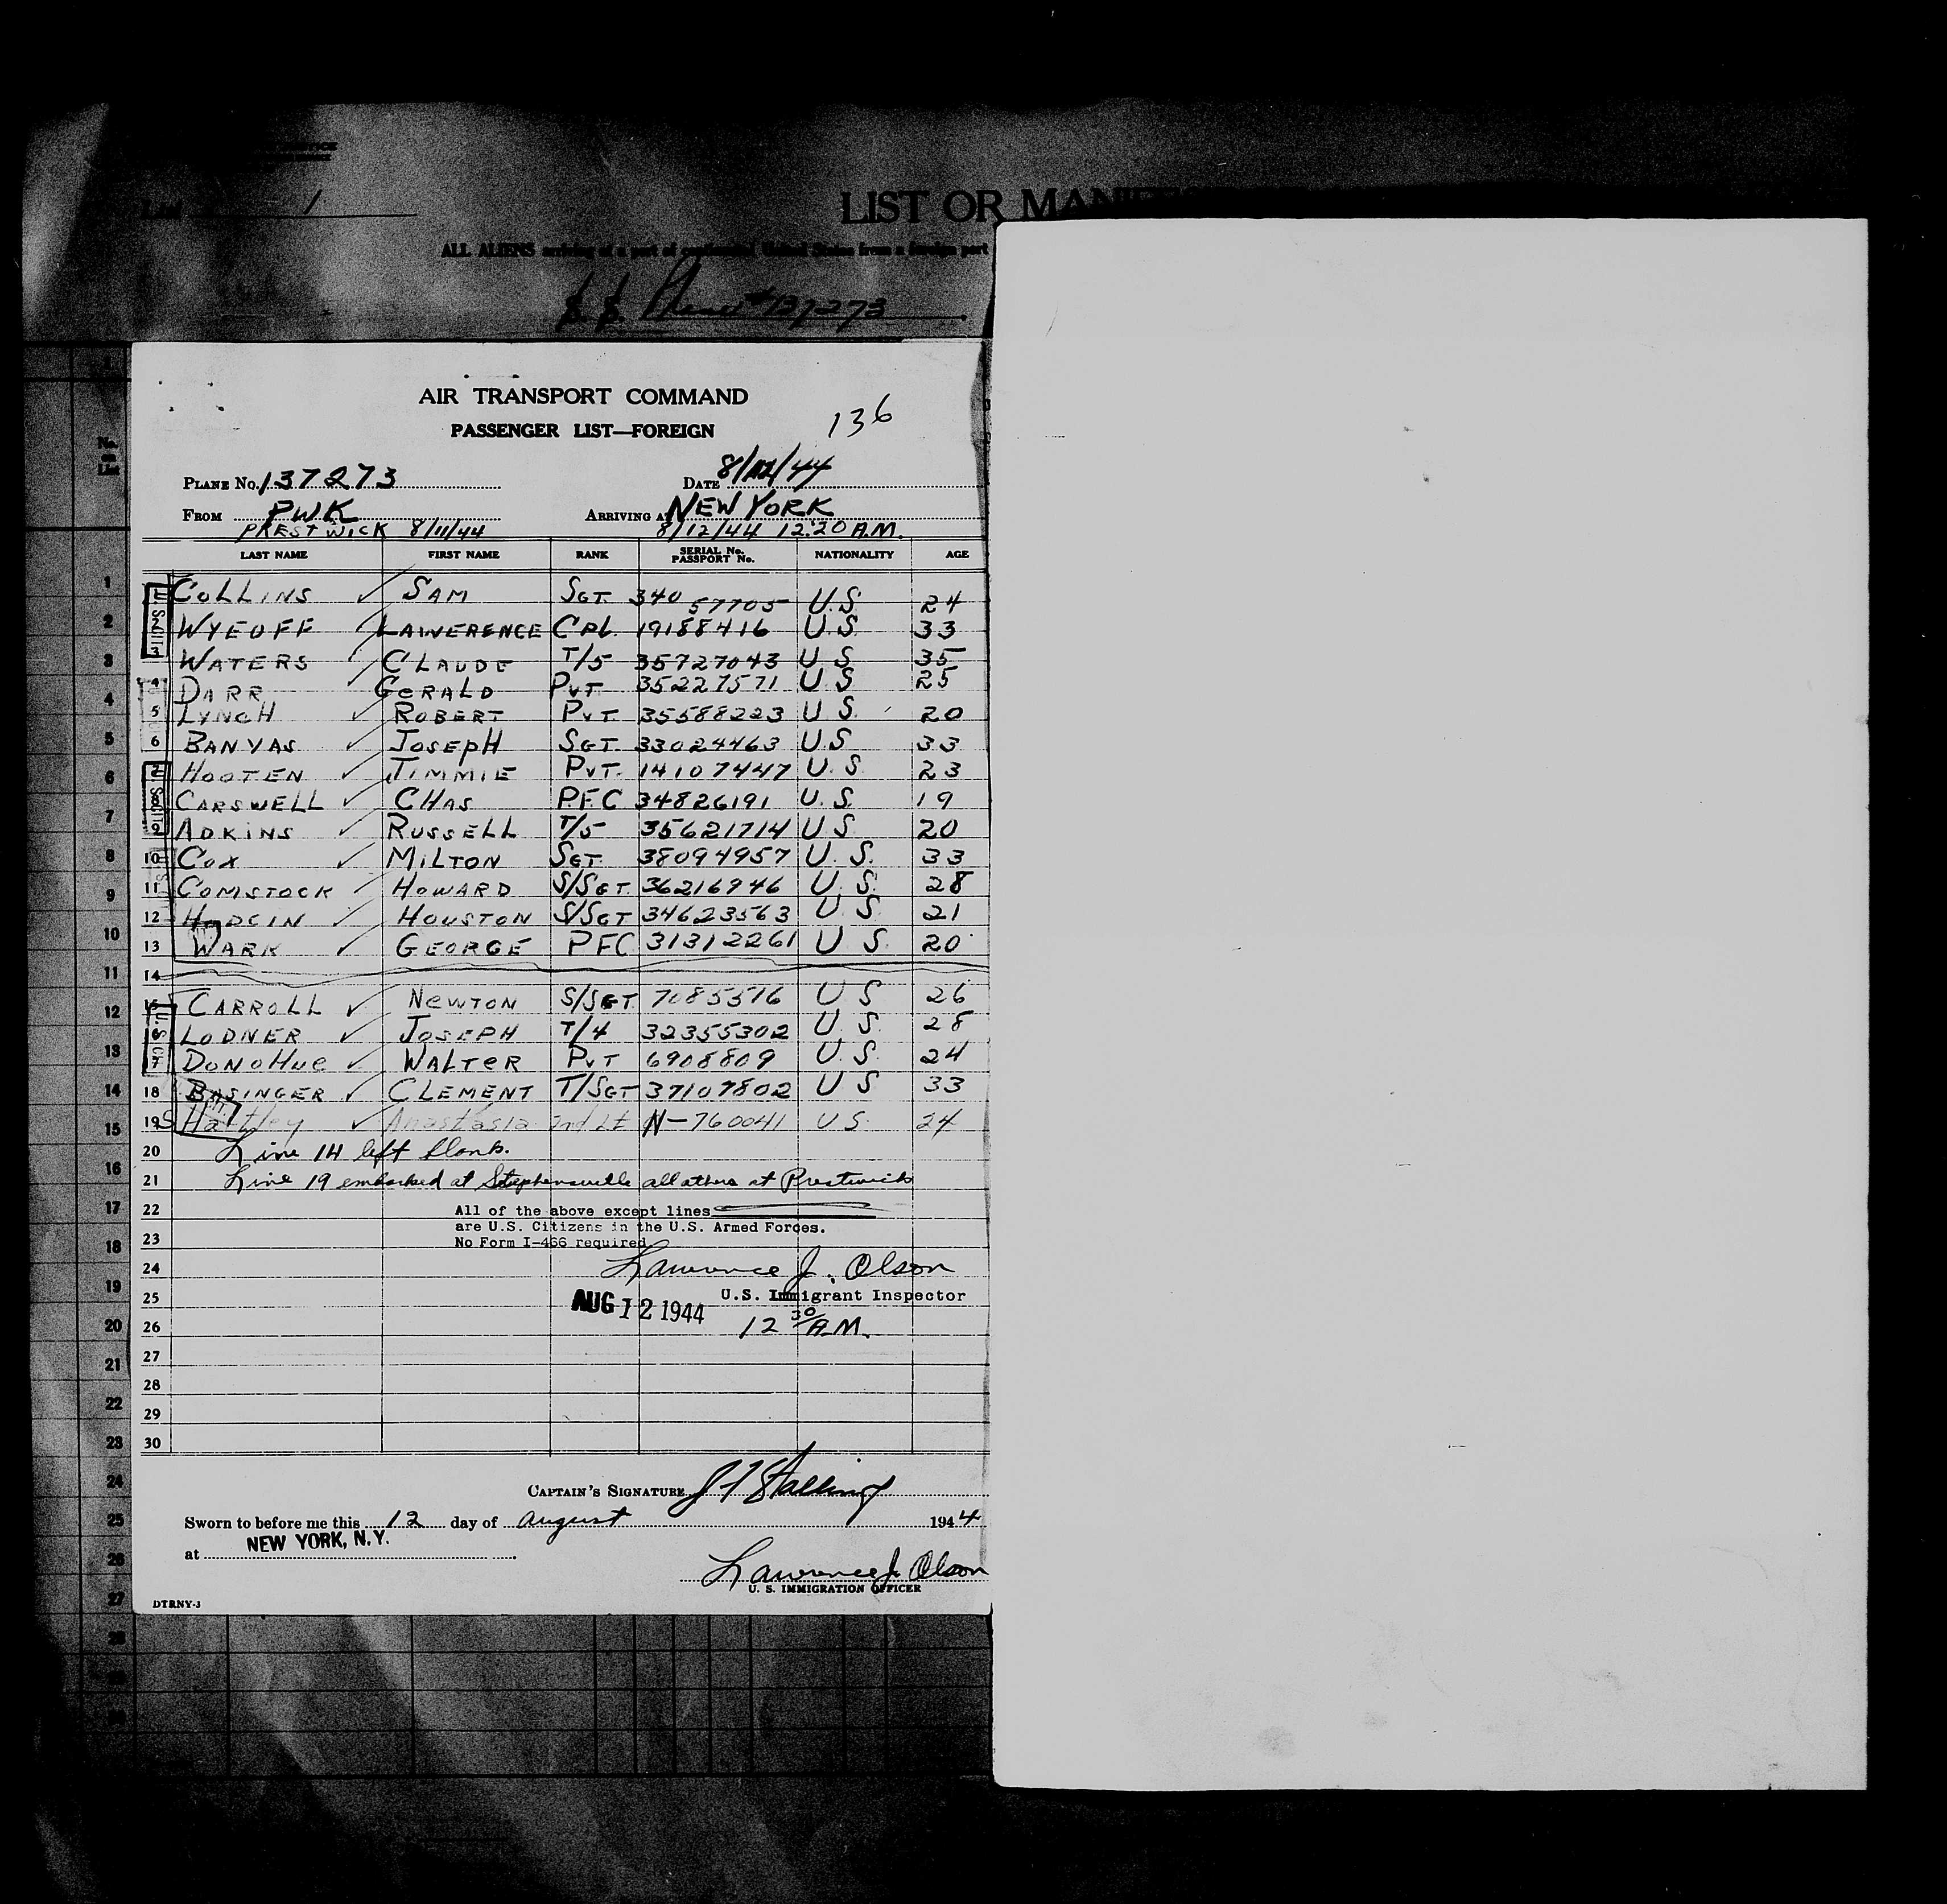 1
LIST OR MANIF
ALL ALIENS arriving at a port of continental United States from a foreign port
137273
AIR TRANSPORT COMMAND
136
PASSENGER LIST—FOREIGN
PLANE No. 137273 DATE 8/12/44
FROM PWK ARRIVING AT NEW YORK
PRESTWICK 8/11/44 8/12/44 12:20 A.M.
LAST NAME FIRST NAME RANK SERIAL No. PASSPORT No. NATIONALITY AGE
COLLINS SAM SGT. 34057705 U.S 24
WYEOFF LAWERENCE CPL. 19188416 U.S. 33
WATERS CLAUDE T/5 35727043 U.S 35
4 DARR GERALD PVT 35227571 U.S 25
5 LYNCH ROBERT PVT. 35588223 U.S. 20
6 BANYAS JOSEPH SGT. 33024463 U.S 33
7 HOOTEN JIMMIE PVT. 14107447 U.S. 23
8 CARSWELL CHAS P.F.C 34826191 U.S. 19
9 ADKINS RUSSELL T/5 35621714 U.S 20
10 COX MILTON SGT. 38094957 U.S. 33
11 COMSTOCK HOWARD S/SGT. 36216946 U.S. 28
12 HODGIN HOUSTON S/SGT 34623563 U.S. 21
13 WARK GEORGE PFC 31312261 U.S. 20
14
15 CARROLL NEWTON S/SGT. 7085516 U S 26
16 LODNER JOSEPH T/4 32355302 U.S. 28
17 DONOHUE WALTER PVT 6908809 U.S. 24
18 BASINGER CLEMENT T/SGT 37107802 U S 33
19 Hatley Anastasia 2nd Lt N-760041 U S. 24
20 Line 14 left blank.
21 Line 19 embarked at Stephensville all others at Prestwick
22 All of the above except lines
are U.S. Citizens in the U.S. Armed Forces.
23 No Form I-466 required
24 Lawrence J. Olson
25 AUG 12 1944 U.S. Immigrant Inspector
26 12 30 A.M.
27
28
29
30
CAPTAIN'S SIGNATURE
Sworn to before me this 12 day of August 1944
at NEW YORK, N.Y.
Lawrence J. Olson
U. S. IMMIGRATION OFFICER
DTRNY-3